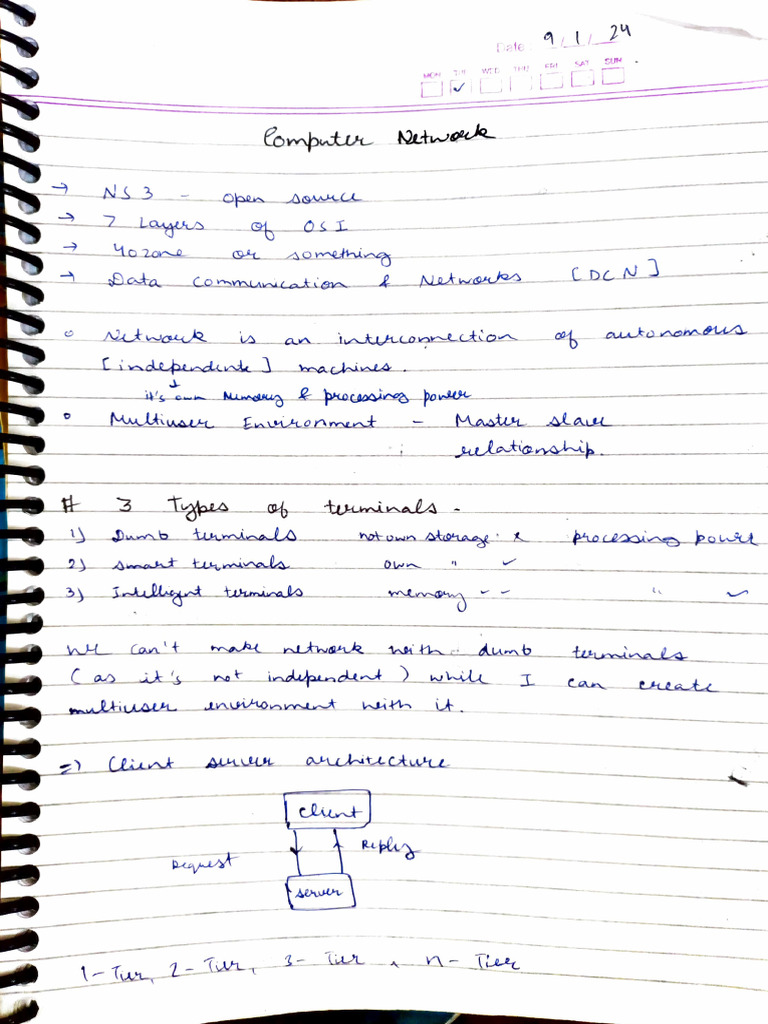 Date 9/1/24
MON TUE WED THU FRI SAT SUN
✓
Computer Network
→ NS3 - open source
→ 7 Layers of OSI
→ 40zone or something
→ Data communication & Networks [DCN]
○ Network is an interconnection of autonomous
[independent] machines.
↓
it's own memory & processing power
○ Multiuser Environment - Master slave
relationship.
# 3 Types of terminals -
1) Dumb terminals not own storage x processing power
2) smart terminals own " ✓
3) Intelligent terminals memory -- " ✓
We can't make network with dumb terminals
(as it's not independent) while I can create
multiuser environment with it.
=> Client server architecture
Client
Request Reply
server
1-Tier, 2-Tier, 3-Tier, n-Tier